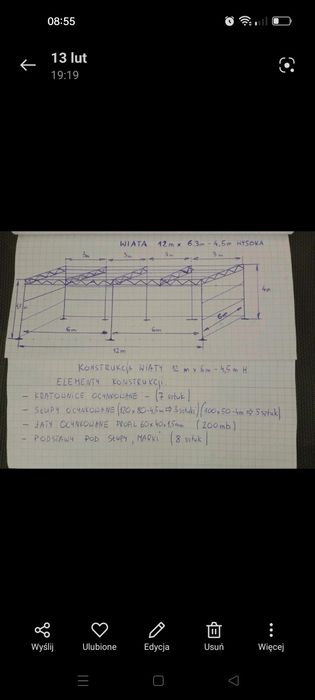 08:55
13 lut
19:19
WIATA 12m x 6.3m - 4,5m WYSOKA
3m 3m 3m 3m
4m
6m 6m 6m
12m
KONSTRUKCJA WIATY 12m x 6m - 4,5m H
ELEMENTY KONSTRUKCJI
- KRATOWNICE OCYNKOWANE - (7 sztuk)
- SŁUPY OCYNKOWANE (120x80-4,5m => 3 sztuki) (100x50-4m => 5 sztuk)
- ŁATY OCYNKOWANE PROFIL 60x40x1,5mm (200mb)
- PODSTAWY POD SŁUPY "MARKI" (8 sztuk)
Wyślij
Ulubione
Edycja
Usuń
Więcej